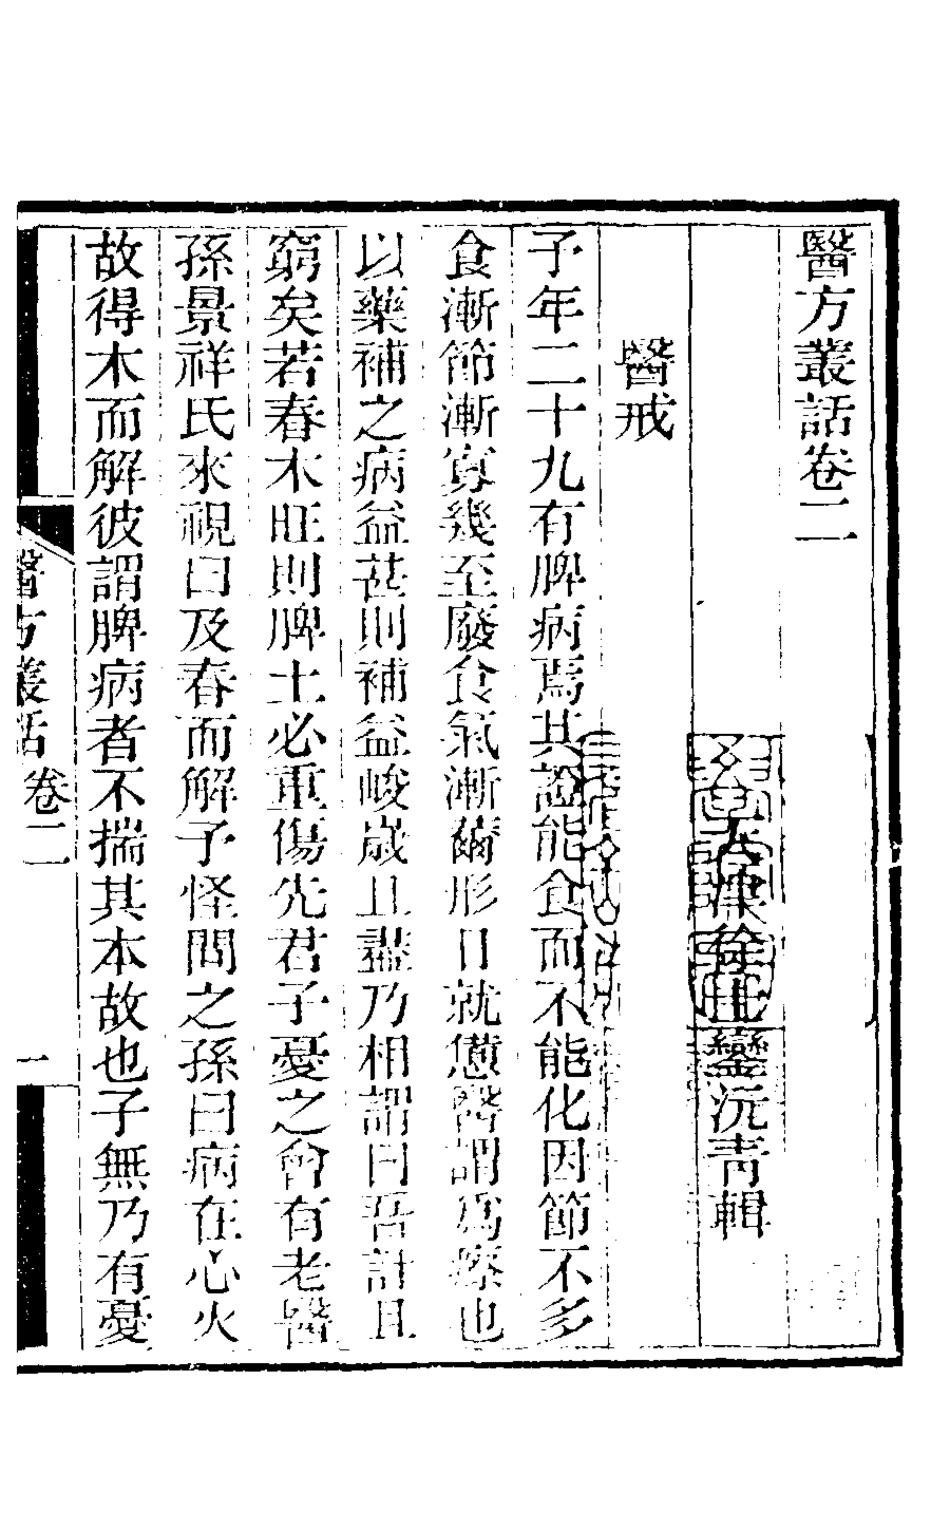 醫方叢話卷二
天津徐士鑾沅青輯
醫戒
予年二十九有脾病焉其證能食而不能化因節不多
食漸節漸寡幾至廢食氣漸薾形日就憊醫謂為瘵也
以藥補之病益甚則補益峻歲且盡乃相謂曰吾計且
窮矣若春木旺則脾土必重傷先君子憂之會有老醫
孫景祥氏來視曰及春而解予怪問之孫曰病在心火
故得木而解彼謂脾病者不揣其本故也子無乃有憂
醫方叢話 卷二 一